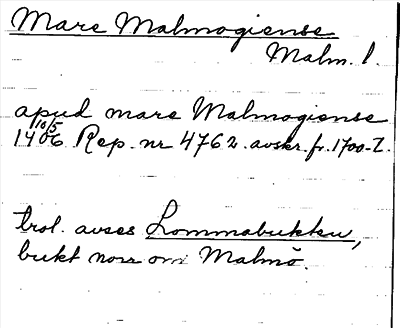 Mare Malmogiense
Malm. l.
apud mare Malmogiense
1406 10/5 Rep. nr 4762. avskr. fr. 1700-t.
trol. avses Lommabukten,
bukt norr om Malmö.